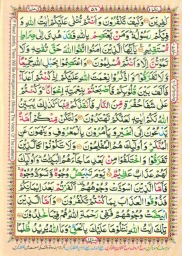 كٰفِرِيْنَ وَكَيْفَ تَكْفُرُوْنَ وَاَنْتُمْ تُتْلٰى عَلَيْكُمْ اٰيٰتُ اللّٰهِ
وَفِيْكُمْ رَسُوْلُهٗ وَمَنْ يَّعْتَصِمْ بِاللّٰهِ فَقَدْ هُدِيَ اِلٰى صِرَاطٍ
مُّسْتَقِيْمٍ يٰۤاَيُّهَا الَّذِيْنَ اٰمَنُوا اتَّقُوا اللّٰهَ حَقَّ تُقٰتِهٖ وَلَا
تَمُوْتُنَّ اِلَّا وَاَنْتُمْ مُّسْلِمُوْنَ وَاعْتَصِمُوْا بِحَبْلِ اللّٰهِ جَمِيْعًا
وَّلَا تَفَرَّقُوْا وَاذْكُرُوْا نِعْمَتَ اللّٰهِ عَلَيْكُمْ اِذْ كُنْتُمْ اَعْدَآءً
فَاَلَّفَ بَيْنَ قُلُوْبِكُمْ فَاَصْبَحْتُمْ بِنِعْمَتِهٖۤ اِخْوَانًا وَكُنْتُمْ
عَلٰى شَفَا حُفْرَةٍ مِّنَ النَّارِ فَاَنْقَذَكُمْ مِّنْهَا كَذٰلِكَ يُبَيِّنُ
اللّٰهُ لَكُمْ اٰيٰتِهٖ لَعَلَّكُمْ تَهْتَدُوْنَ وَلْتَكُنْ مِّنْكُمْ اُمَّةٌ
يَّدْعُوْنَ اِلَى الْخَيْرِ وَيَاْمُرُوْنَ بِالْمَعْرُوْفِ وَيَنْهَوْنَ عَنِ
الْمُنْكَرِ وَاُولٰٓئِكَ هُمُ الْمُفْلِحُوْنَ وَلَا تَكُوْنُوْا كَالَّذِيْنَ
تَفَرَّقُوْا وَاخْتَلَفُوْا مِنْۢ بَعْدِ مَا جَآءَهُمُ الْبَيِّنٰتُ وَاُولٰٓئِكَ
لَهُمْ عَذَابٌ عَظِيْمٌ يَّوْمَ تَبْيَضُّ وُجُوْهٌ وَّتَسْوَدُّ وُجُوْهٌ
فَاَمَّا الَّذِيْنَ اسْوَدَّتْ وُجُوْهُهُمْ اَكَفَرْتُمْ بَعْدَ اِيْمَانِكُمْ
فَذُوْقُوا الْعَذَابَ بِمَا كُنْتُمْ تَكْفُرُوْنَ وَاَمَّا الَّذِيْنَ
ابْيَضَّتْ وُجُوْهُهُمْ فَفِيْ رَحْمَةِ اللّٰهِ هُمْ فِيْهَا خٰلِدُوْنَ
تِلْكَ اٰيٰتُ اللّٰهِ نَتْلُوْهَا عَلَيْكَ بِالْحَقِّ وَمَا اللّٰهُ يُرِيْدُ ظُلْمًا